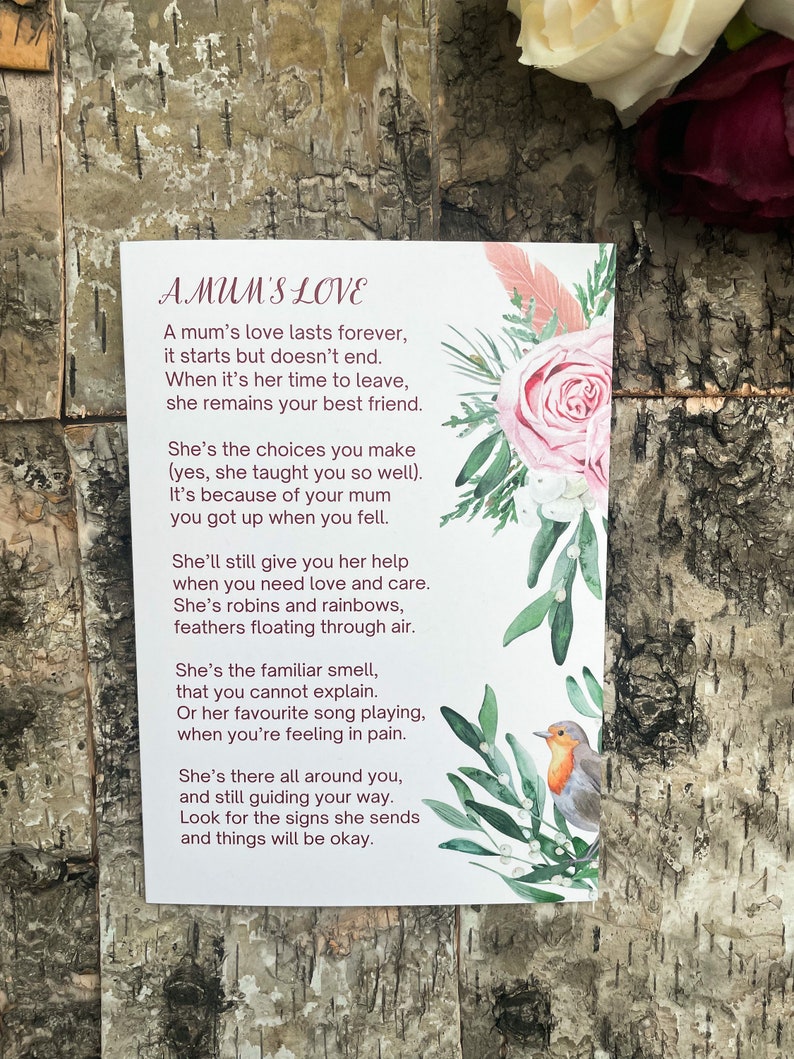 A MUM'S LOVE
A mum's love lasts forever,
it starts but doesn't end.
When it's her time to leave,
she remains your best friend.
She's the choices you make
(yes, she taught you so well).
It's because of your mum
you got up when you fell.
She'll still give you her help
when you need love and care.
She's robins and rainbows,
feathers floating through air.
She's the familiar smell,
that you cannot explain.
Or her favourite song playing,
when you're feeling in pain.
She's there all around you,
and still guiding your way.
Look for the signs she sends
and things will be okay.